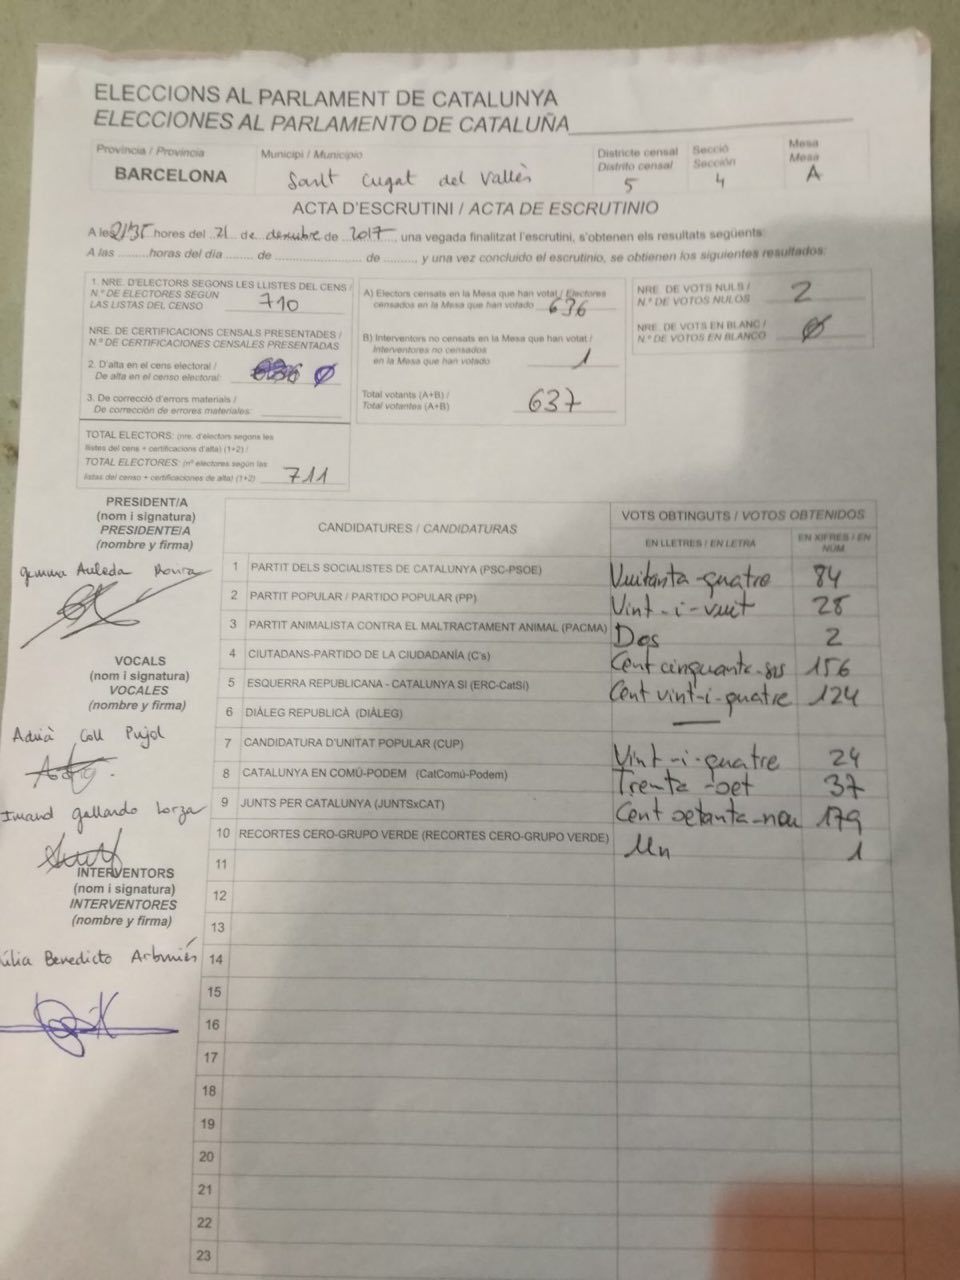 ELECCIONS AL PARLAMENT DE CATALUNYA
ELECCIONES AL PARLAMENTO DE CATALUÑA
Província / Provincia
BARCELONA
Municipi / Municipio
Sant Cugat del Vallès
Districte censal
Distrito censal
5
Secció
Sección
4
Mesa
Mesa
A
ACTA D'ESCRUTINI / ACTA DE ESCRUTINIO
A les 21'35 hores del 21 de desembre de 2017, una vegada finalitzat l'escrutini, s'obtenen els resultats següents:
A las .........horas del día ........ de ........................ de ........, y una vez concluido el escrutinio, se obtienen los siguientes resultados:
1. NRE. D'ELECTORS SEGONS LES LLISTES DEL CENS /
N.º DE ELECTORES SEGÚN
LAS LISTAS DEL CENSO 710
NRE. DE CERTIFICACIONS CENSALS PRESENTADES /
N.º DE CERTIFICACIONES CENSALES PRESENTADAS
2. D'alta en el cens electoral /
De alta en el censo electoral: Ø
3. De correcció d'errors materials /
De corrección de errores materiales:
TOTAL ELECTORS: (nre. d'electors segons les
llistes del cens + certificacions d'alta) (1+2) /
TOTAL ELECTORES: (nº electores según las
listas del censo + certificaciones de alta) (1+2) 711
A) Electors censats en la Mesa que han votat / Electores
censados en la Mesa que han votado 636
B) Interventors no censats en la Mesa que han votat /
Interventores no censados
en la Mesa que han votado 1
Total votants (A+B) /
Total votantes (A+B) 637
NRE. DE VOTS NULS /
N.º DE VOTOS NULOS 2
NRE. DE VOTS EN BLANC /
N.º DE VOTOS EN BLANCO Ø
PRESIDENT/A
(nom i signatura)
PRESIDENTE/A
(nombre y firma)
Gemma Auleda Roura
VOCALS
(nom i signatura)
VOCALES
(nombre y firma)
Adrià Coll Pujol
Gallardo Lorza
INTERVENTORS
(nom i signatura)
INTERVENTORES
(nombre y firma)
úlia Benedicto
CANDIDATURES / CANDIDATURAS
VOTS OBTINGUTS / VOTOS OBTENIDOS
EN LLETRES / EN LETRA
EN XIFRES / EN NÚM.
1 PARTIT DELS SOCIALISTES DE CATALUNYA (PSC-PSOE) Vuitanta-quatre 84
2 PARTIT POPULAR / PARTIDO POPULAR (PP) Vint-i-vuit 28
3 PARTIT ANIMALISTA CONTRA EL MALTRACTAMENT ANIMAL (PACMA) Dos 2
4 CIUTADANS-PARTIDO DE LA CIUDADANÍA (C's) Cent cinquanta-sis 156
5 ESQUERRA REPUBLICANA - CATALUNYA SÍ (ERC-CatSí) Cent vint-i-quatre 124
6 DIÀLEG REPUBLICÀ (DIÀLEG) —
7 CANDIDATURA D'UNITAT POPULAR (CUP) Vint-i-quatre 24
8 CATALUNYA EN COMÚ-PODEM (CatComú-Podem) Trenta-set 37
9 JUNTS PER CATALUNYA (JUNTSxCAT) Cent setanta-nou 179
10 RECORTES CERO-GRUPO VERDE (RECORTES CERO-GRUPO VERDE) Un 1
11
12
13
14
15
16
17
18
19
20
21
22
23